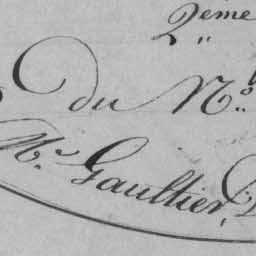 2ème
Du N°
Mr Gaultier,